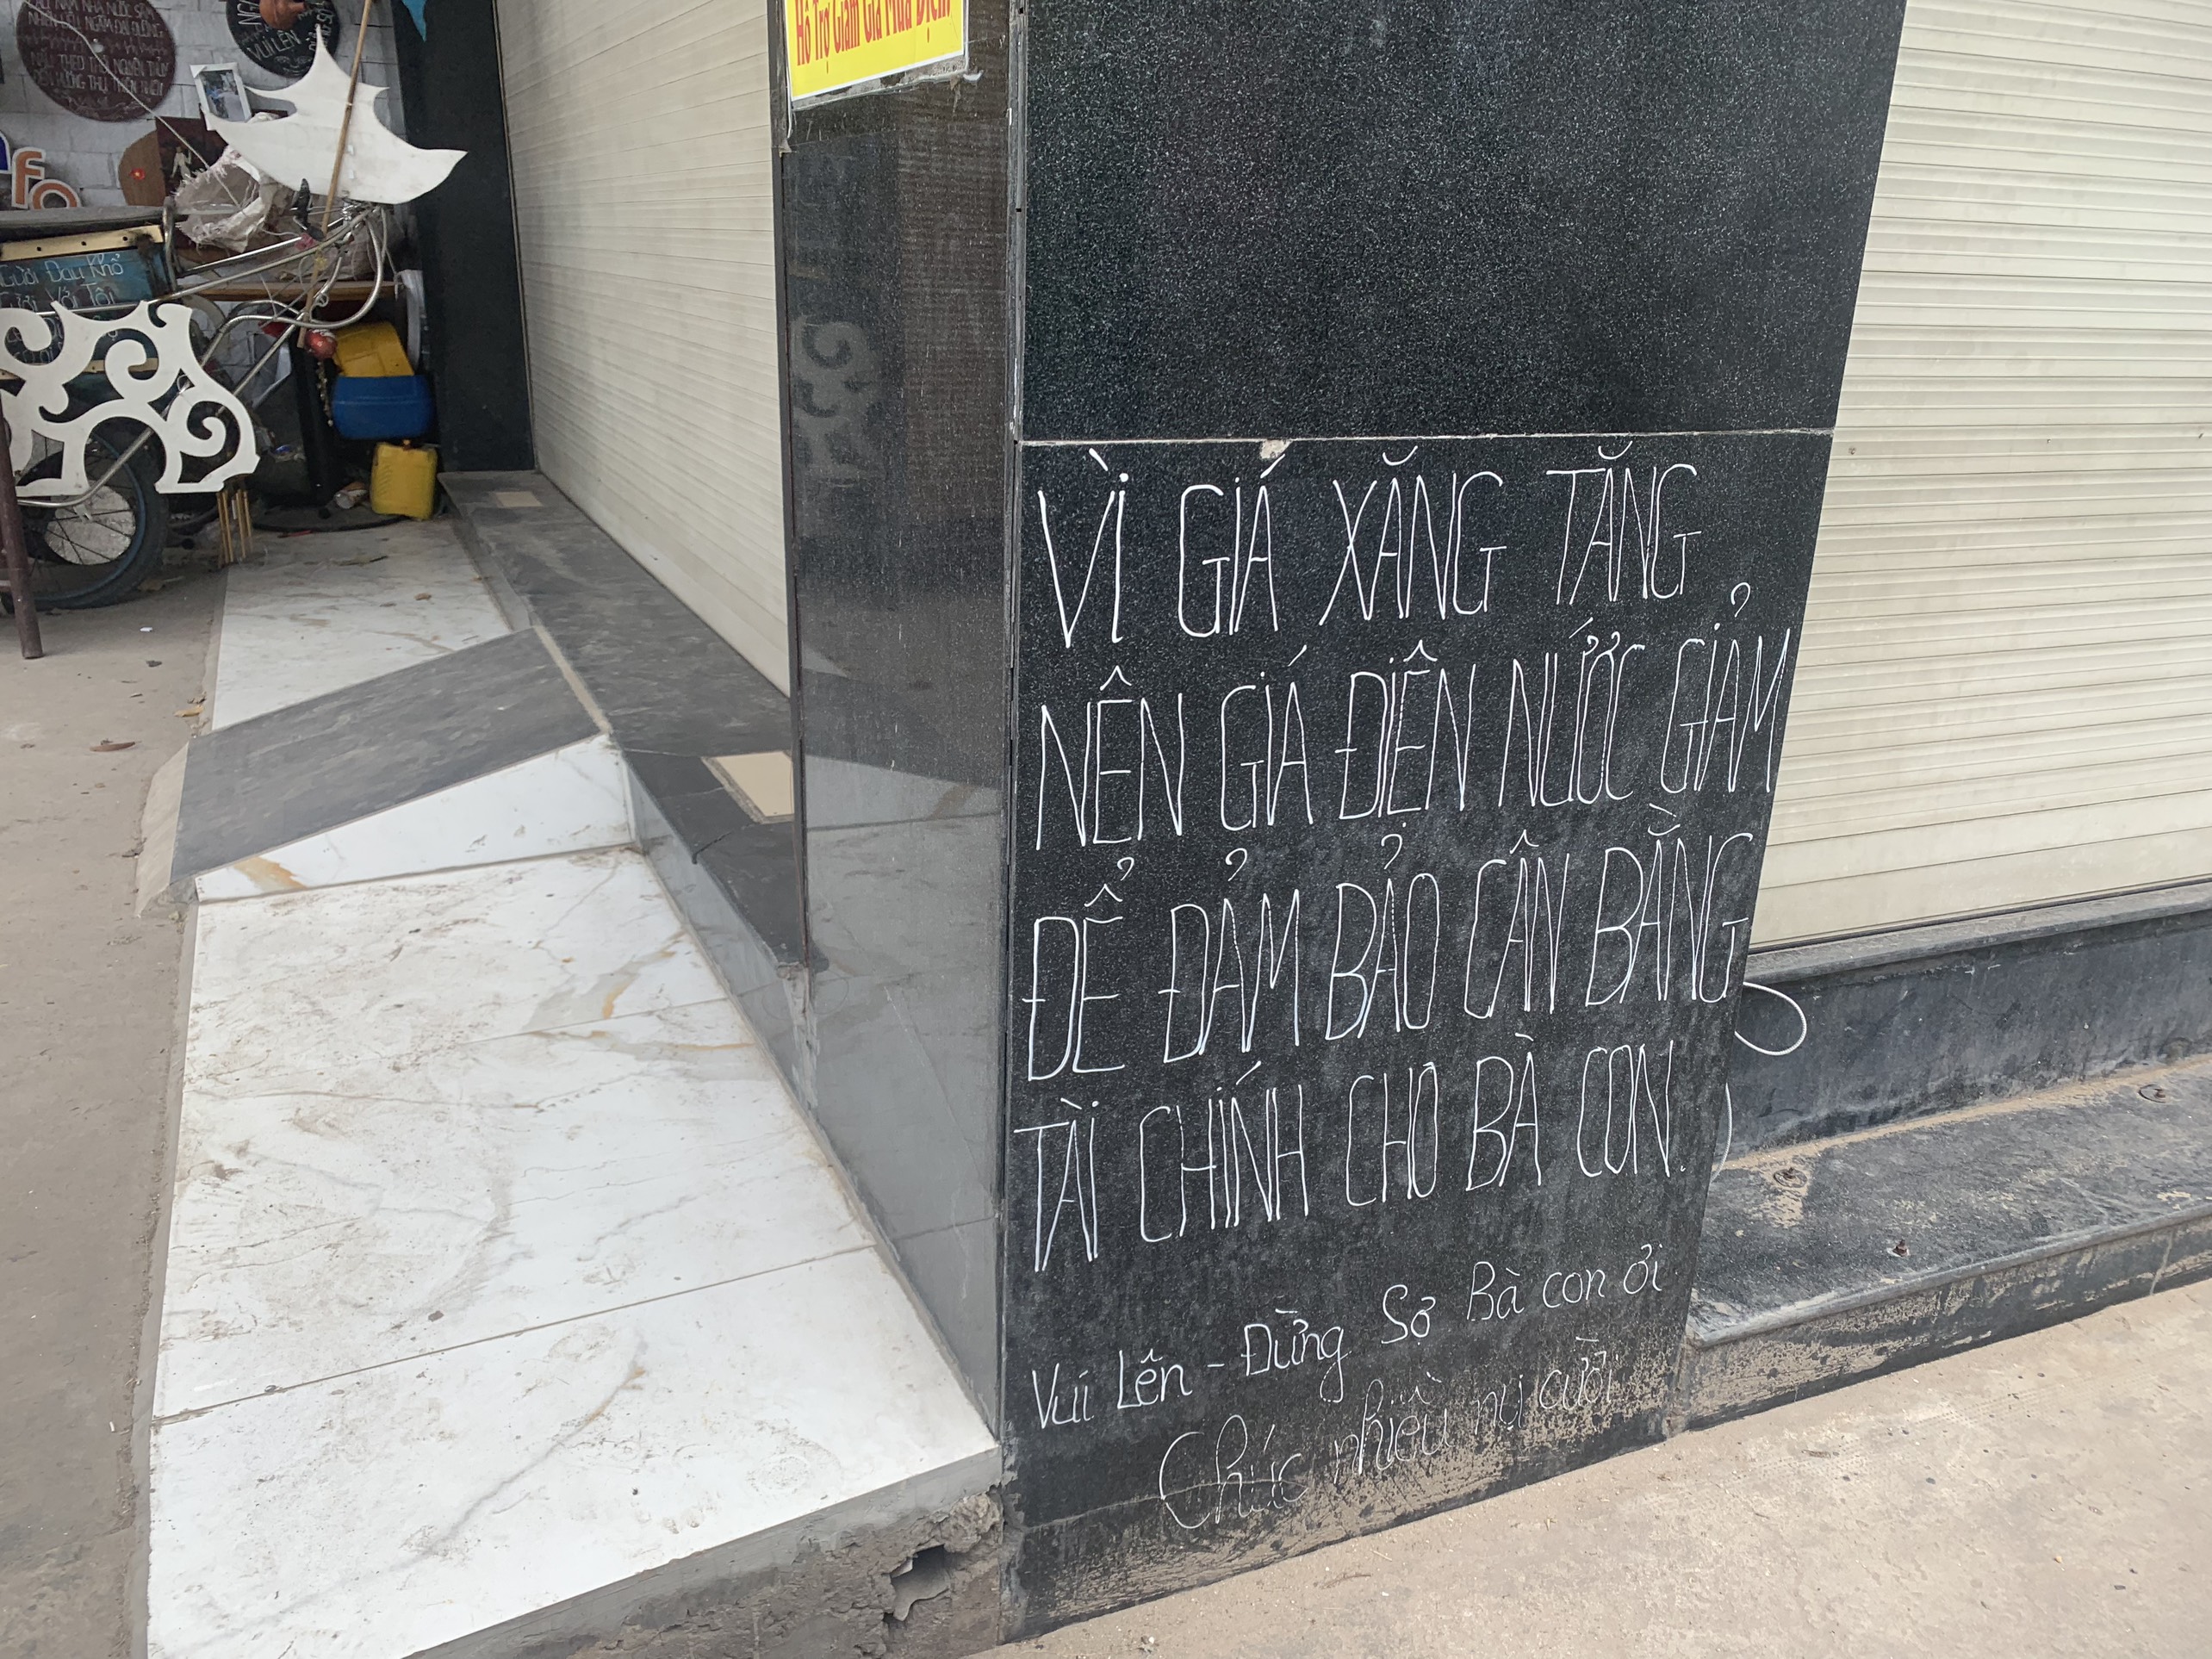 Hỗ Trợ Giảm Giá Mùa Dịch
VUI LÊN
fo
Đau Khổ
Với Tôi
VÌ GIÁ XĂNG TĂNG
NÊN GIÁ ĐIỆN NƯỚC GIẢM
ĐỂ ĐẢM BẢO CÂN BẰNG
TÀI CHÍNH CHO BÀ CON.
Vui Lên - Đừng Sợ Bà con ởi
Chúc nhiều nụ cười